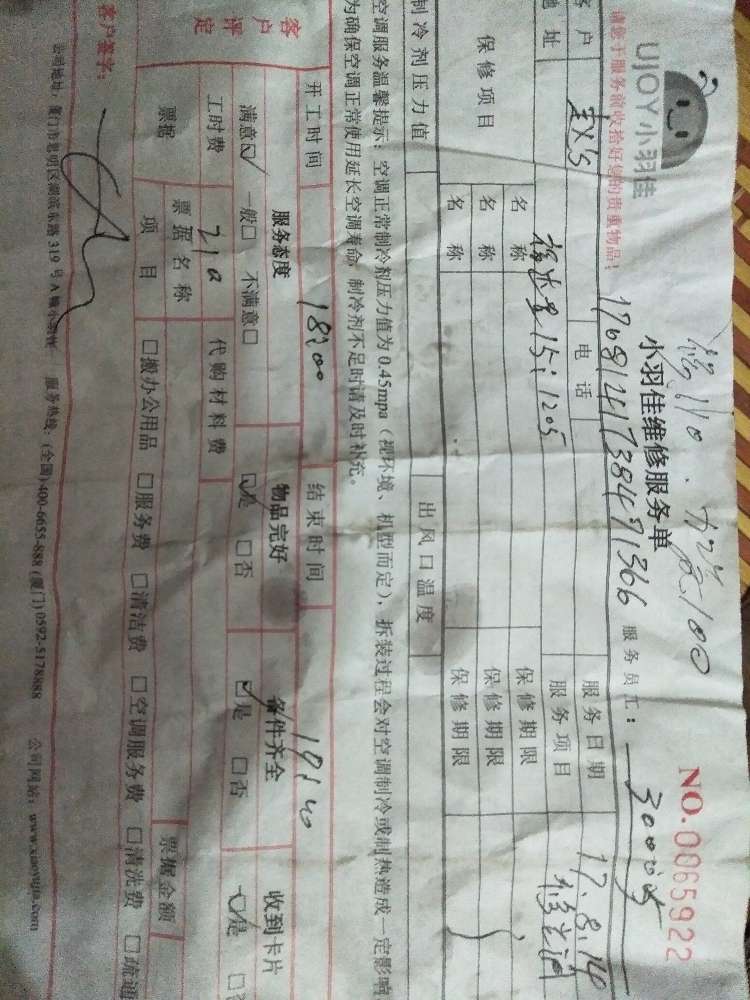 UJOY小羽佳
小羽佳维修服务单
NO.0065922
请您于服务前收拾好您的贵重物品!
17681417384471366
服务员工:
客户
电话
服务日期
17.8.14
地址
1205
服务项目
保修项目
名称
保修期限
名称
保修期限
名称
保修期限
制冷剂压力值
出风口温度
空调服务温馨提示:空调正常制冷剂压力值为0.45mpa(视环境、机型而定),拆装过程会对空调制冷或制热造成一定影响
为确保空调正常使用延长空调寿命,制冷剂不足时请及时补充。
开工时间
18:00
结束时间
19:40
客户评定
服务态度
物品完好
备件齐全
收到卡片
满意☑ 一般□ 不满意□
☑是 □否
☑是 □否
☑是 □
工时费
210
代购材料费
票据
票据名称
票据金额
项目
□搬办公用品 □服务费 □清洁费 □空调服务费 □清洗费 □疏通
客户签字:
公司地址:厦门市思明区湖滨东路319号A幢小羽佳 服务热线:(全国)400-6655-888 (厦门)0592-5178888 公司网站:www.xiaoyujia.com